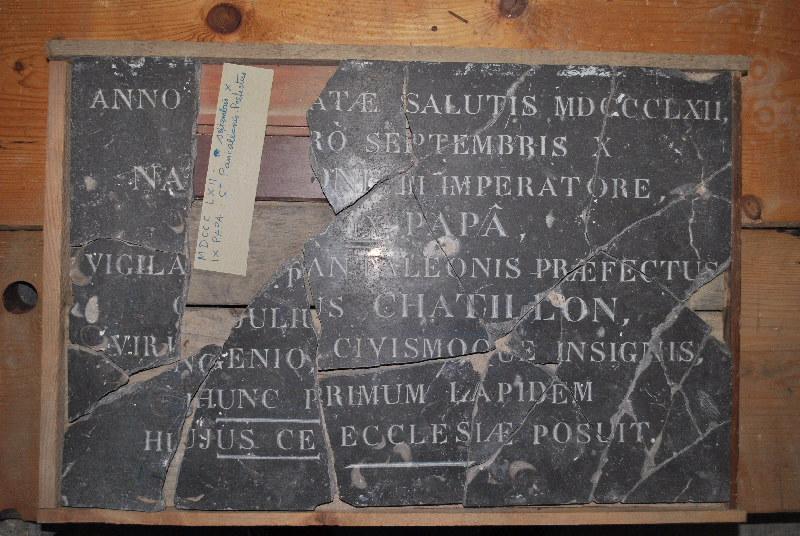 ANNO ATÆ SALUTIS MDCCCLXII,
RÒ SEPTEMBRIS X
NA ONE III IMPERATORE,
IX PAPÂ,
VIGILA PANTALEONIS PRÆFECTUS
JULIUS CHATILLON,
VIR INGENIO, CIVISMOQUE INSIGNIS,
HUNC PRIMUM LAPIDEM
HUJUS CE ECCLESIÆ POSUIT.
MDCCC LXII - septembris X
IX PAPA St Pantaléonis Præfectus